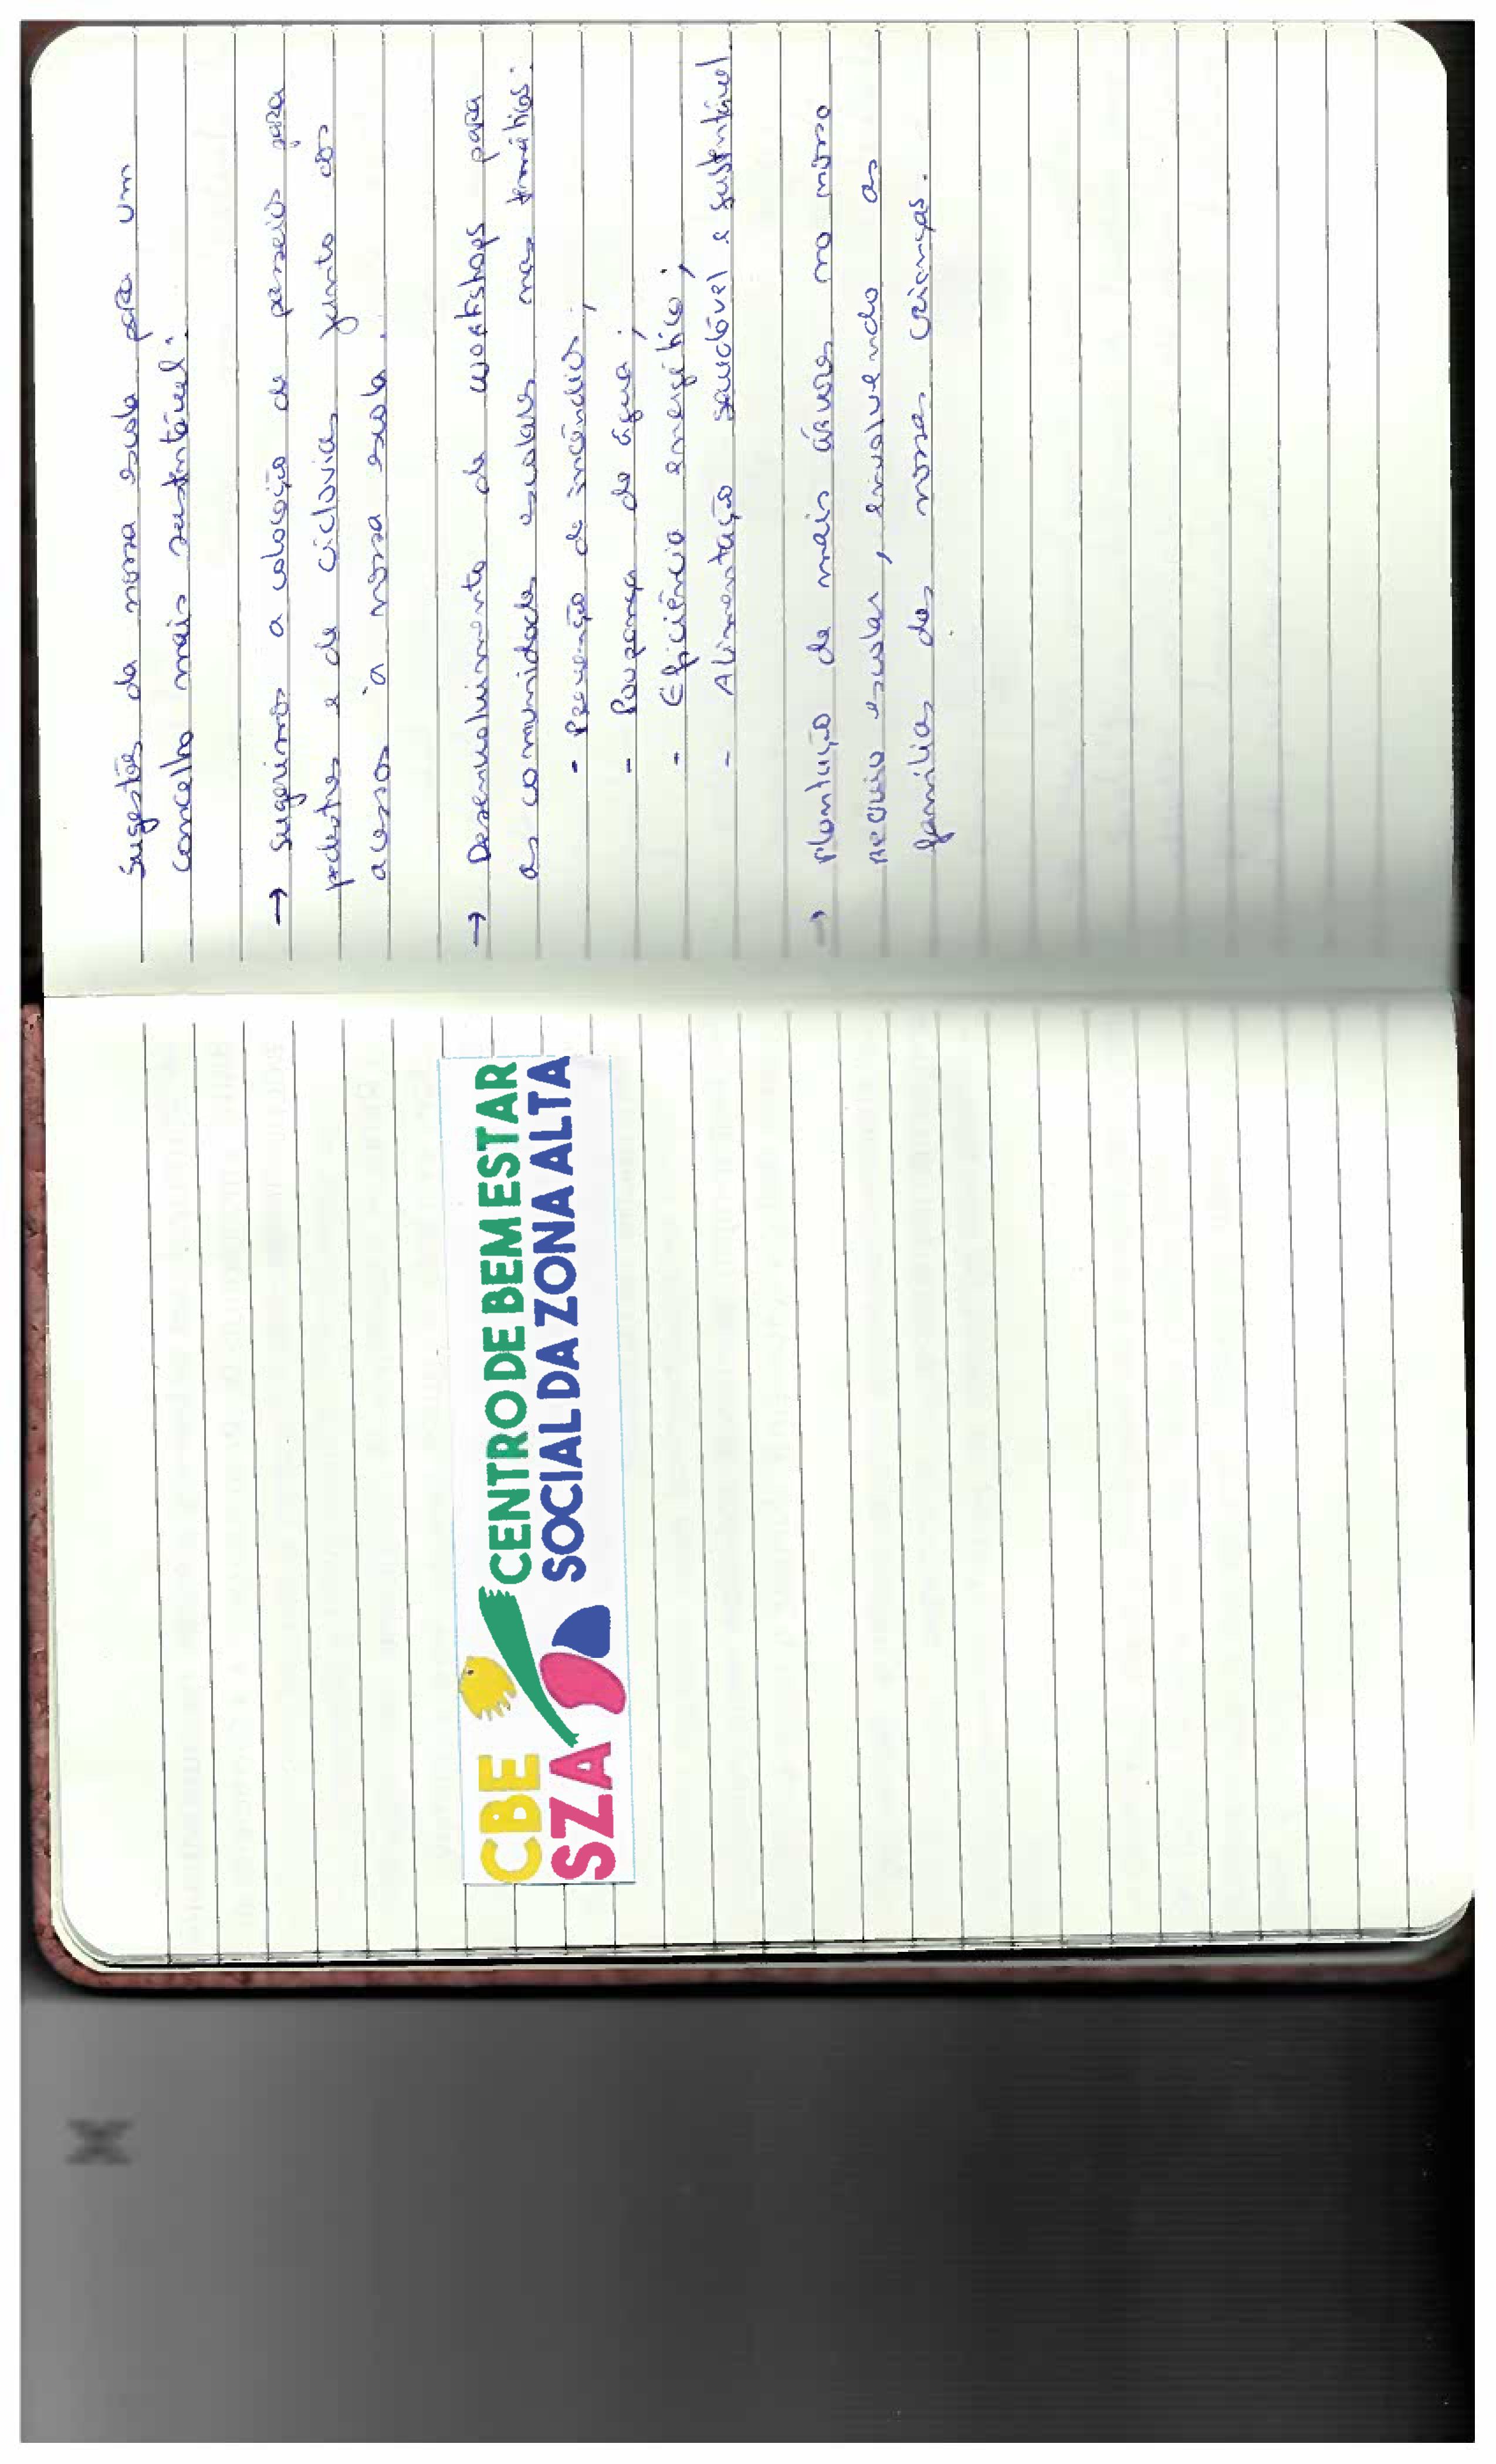 CBE
SZA
CENTRO DE BEM ESTAR
SOCIAL DA ZONA ALTA
Sugestões da nossa escola para um
concelho mais sustentável:
→ Sugerimos a colocação de passeios para
pedestres e de ciclovias junto aos
acessos à nossa escola.
→ Desenvolvimento de workshops para
as comunidades escolares nas temáticas:
- Prevenção de incêndios;
- Poupança de água;
- Eficiência energética;
- Alimentação saudável e sustentável.
→ Plantação de mais árvores no nosso
recreio escolar, envolvendo as
famílias das nossas crianças.